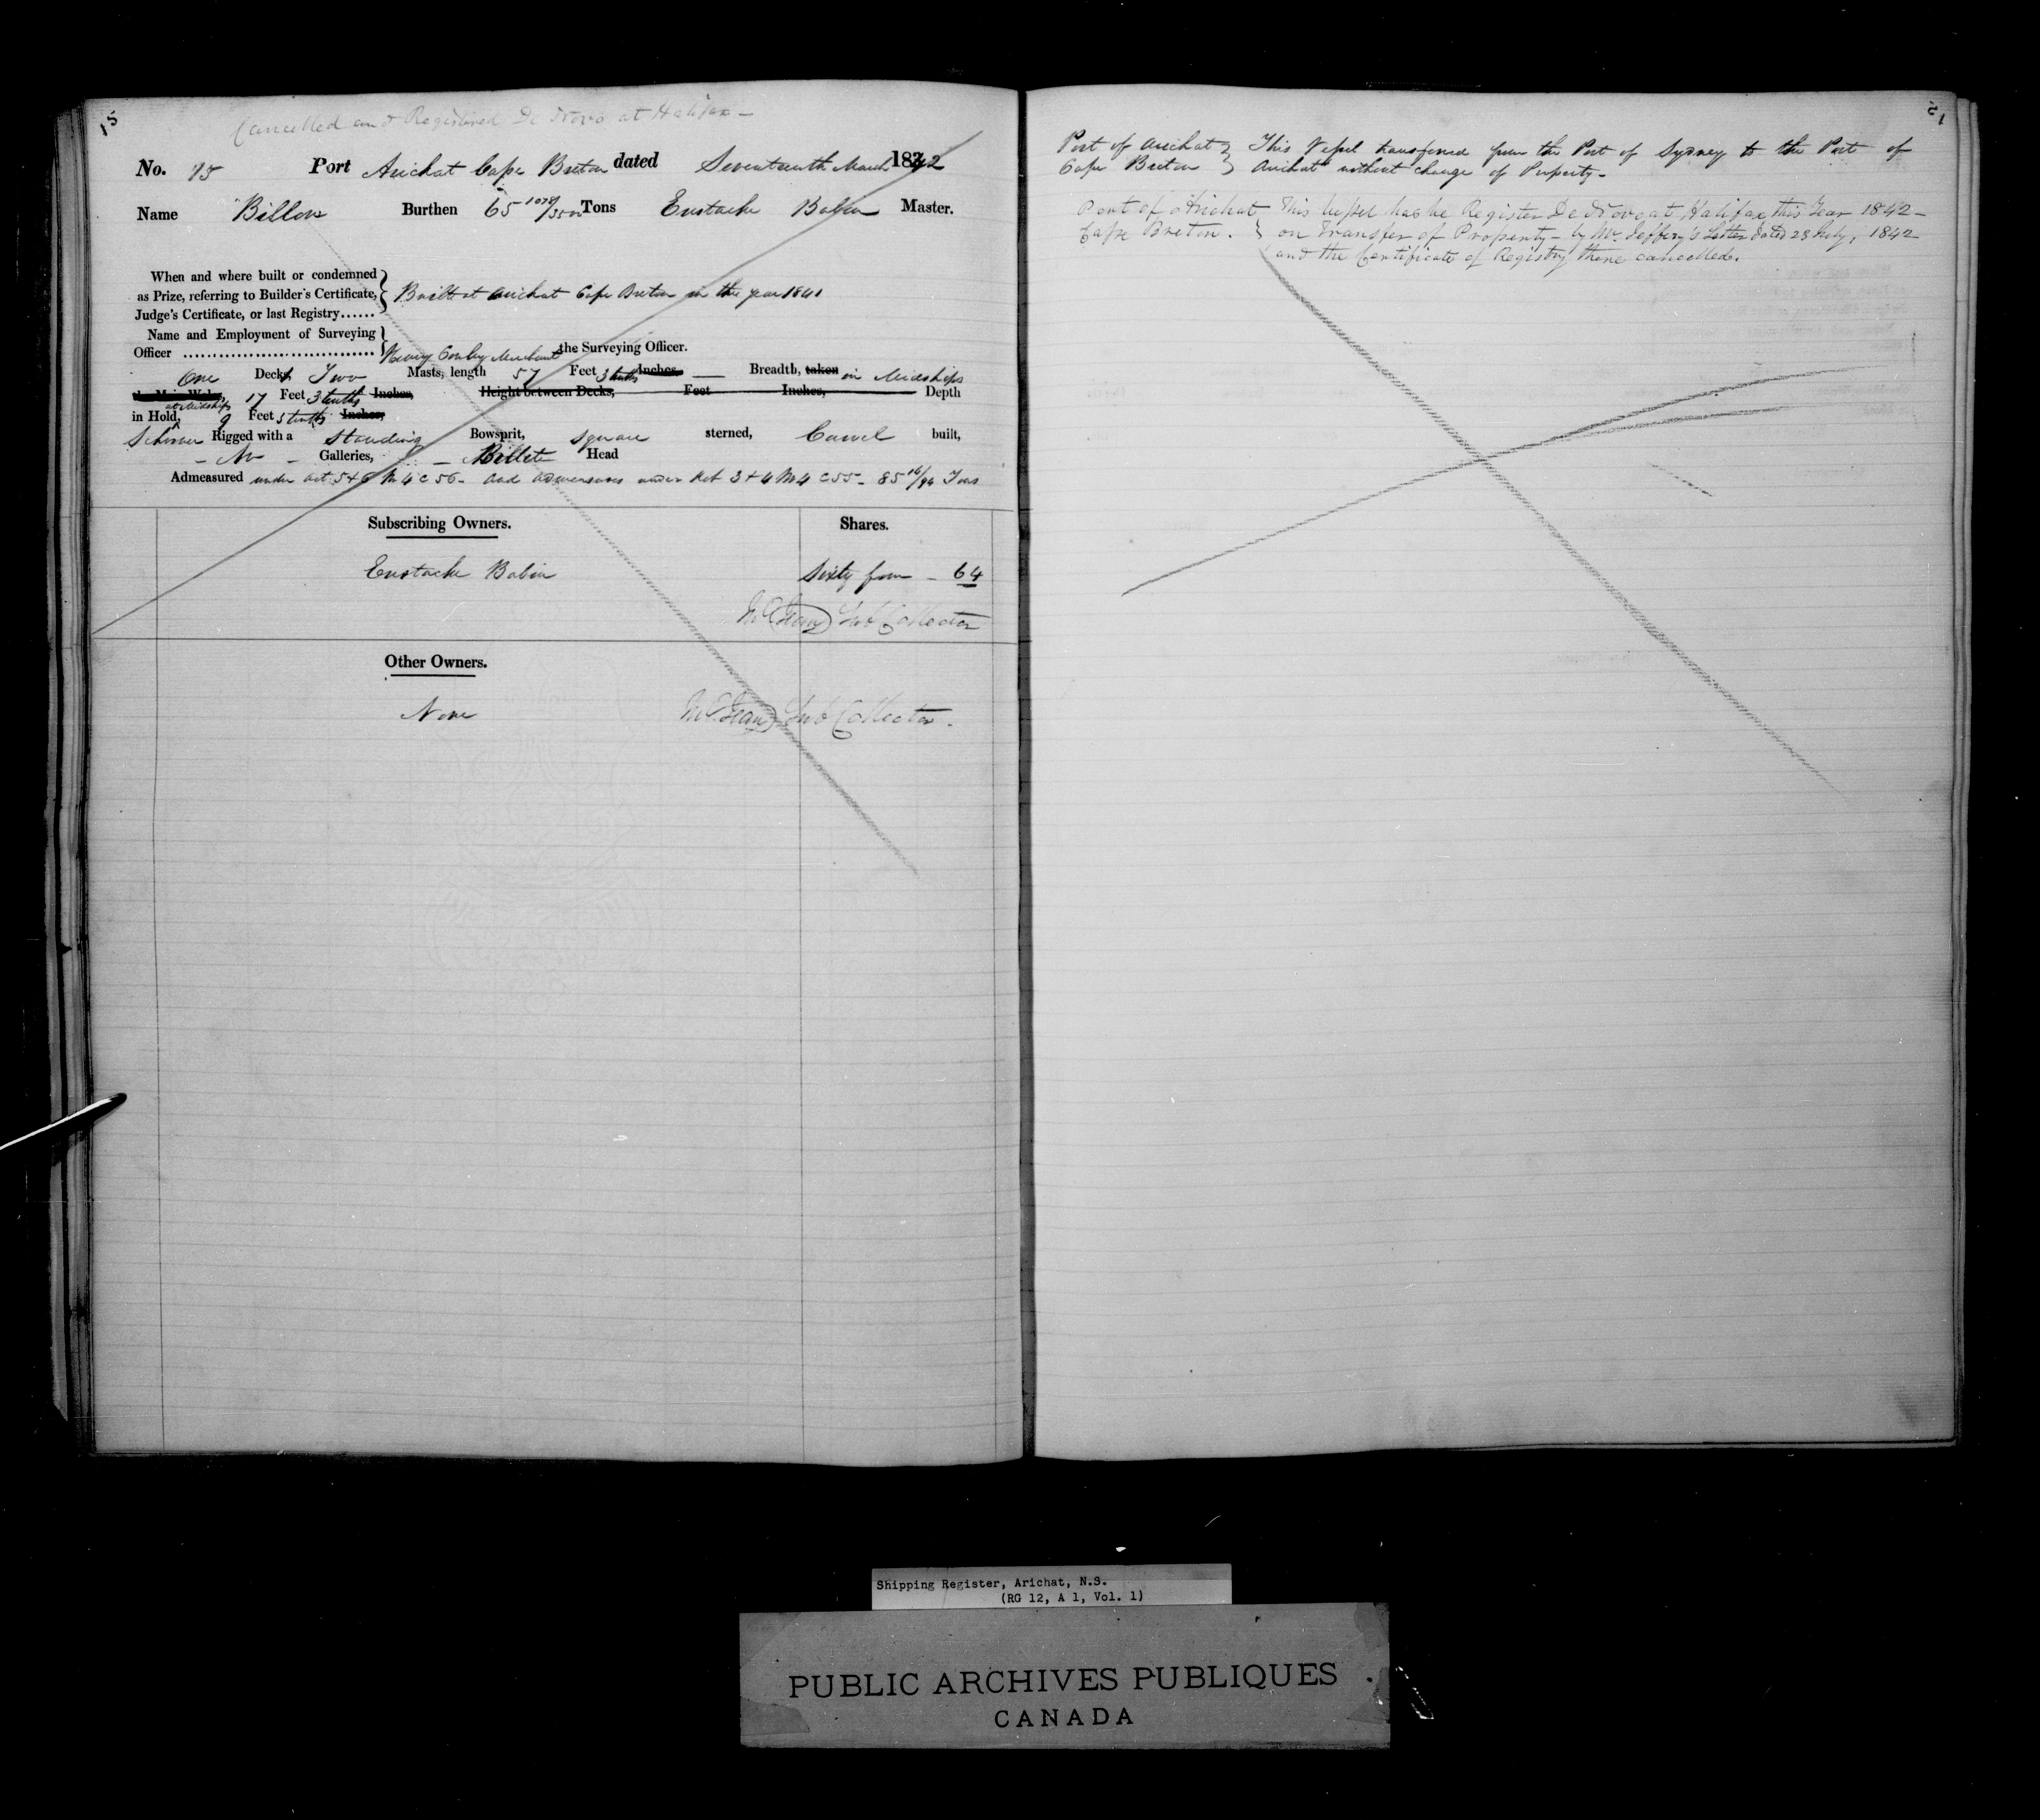 15
Cancelled and Registered De Novo at Halifax -
No. 15 Port Arichat Cape Breton dated Seventeenth March 1842
Name Billow Burthen 65 /3500 Tons Eustache Babin Master.
When and where built or condemned
as Prize, referring to Builder's Certificate, } Built at Arichat Cape Breton in the year 1841
Judge's Certificate, or last Registry......
Name and Employment of Surveying
Officer .................................. } Henry Merchant the Surveying Officer.
One Deck Two Masts, length 57 Feet 3 tenths Inches, — Breadth, taken in Midships
17 Feet 3 tenths Inches, Height between Decks, Feet Inches, Depth
in Hold, at Midships 9 Feet 5 tenths Inches,
Schooner Rigged with a Standing Bowsprit, square sterned, Carvel built,
- No - Galleries, — Billet Head
Admeasured under act 5+6 W 4 C 56 - and admeasures under Act 3+4 W 4 C 55 - 85 16/94 Tons
Subscribing Owners. Shares.
Eustache Babin Sixty four - 64
Sub Collector
Other Owners.
None Sub Collector.
Port of Arichat } This Vessel transferred from the Port of Sydney to the Port of
Cape Breton } Arichat without change of Property -
Port of Arichat } This Vessel has be Register De Novo at Halifax this Year 1842 -
Cape Breton. } on Transfer of Property - by Mr. Jeffery's Letter dated 28 July, 1842
and the Certificate of Registry there cancelled.
Shipping Register, Arichat, N.S.
(RG 12, A 1, Vol. 1)
PUBLIC ARCHIVES PUBLIQUES
CANADA